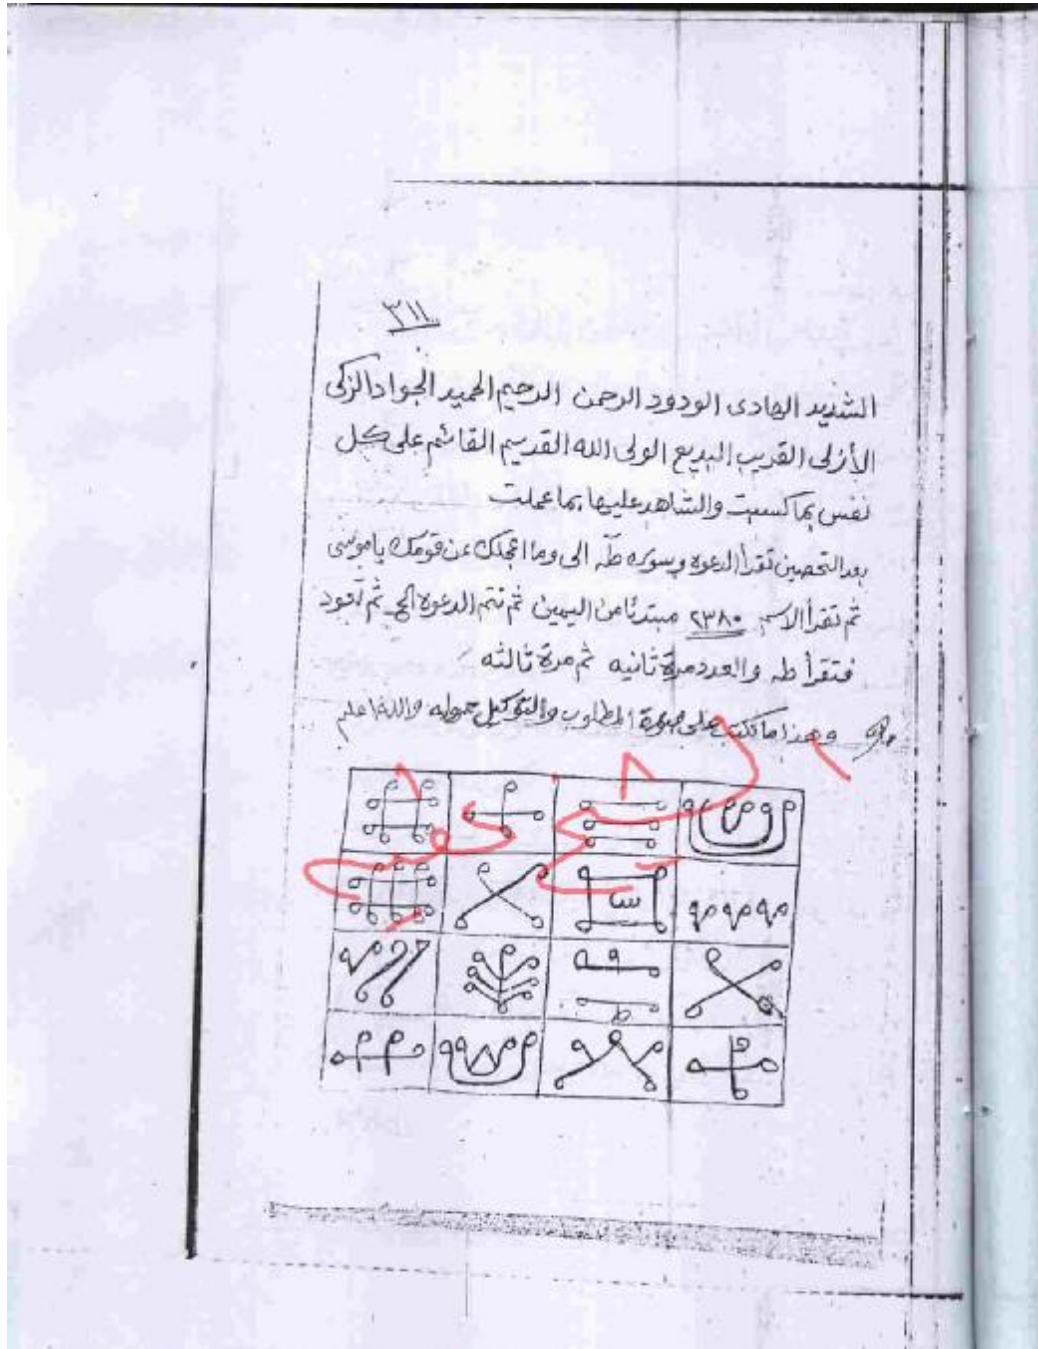 ٣١١
الشديد الهادى الودود الرحمن الرحيم الحميد الجواد الزكى
الأزلى القريب البديع الولى الله القديم القائم على كل
نفس بما كسبت والشاهد عليها بما عملت
بعد التحصين تقرأ الدعوه وسوره طه الى وما اعجلك عن قومك ياموسى
ثم تقرأ الاسم ٢٣٨٠ مبتدئا من اليمين ثم تتم الدعوة ثم تعود
فتقرأ طه والعدد مرة ثانيه ثم مرة ثالثه
وهذا ما تكتب على صورة المطلوب والتوكيل حوله والله اعلم